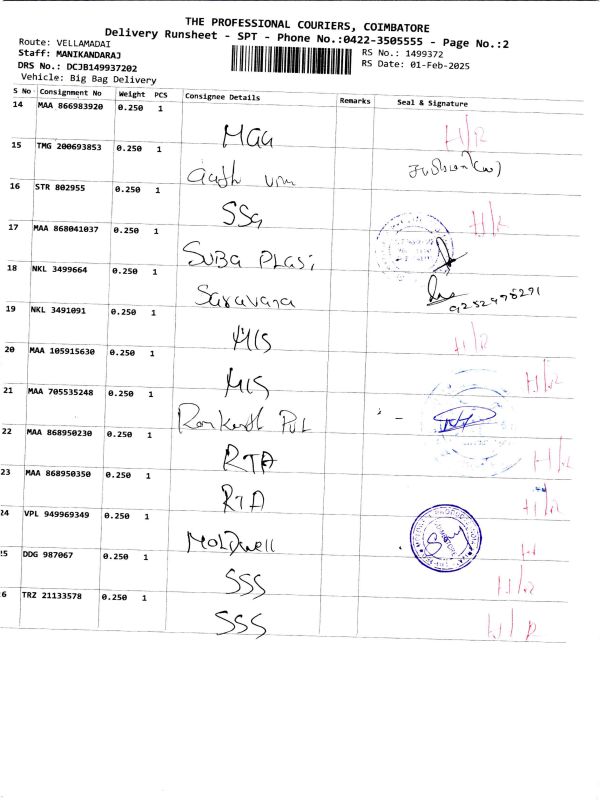 THE PROFESSIONAL COURIERS, COIMBATORE
Delivery Runsheet - SPT - Phone No.:0422-3505555 - Page No.:2
Route: VELLAMADAI
RS No.: 1499372
Staff: MANIKANDARAJ
RS Date: 01-Feb-2025
DRS No.: DCJB149937202
Vehicle: Big Bag Delivery
S No Consignment No Weight PCS Consignee Details Remarks Seal & Signature
14 MAA 866983920 0.250 1 H/R
15 TMG 200693853 0.250 1
16 STR 802955 0.250 1 SSG H/R
17 MAA 868041037 0.250 1 SUBA PLASi
18 NKL 3499664 0.250 1 Saravana
19 NKL 3491091 0.250 1 MIS H/R
20 MAA 105915630 0.250 1 MIS H/R
21 MAA 705535248 0.250 1
22 MAA 868950230 0.250 1 RTA H/R
23 MAA 868950350 0.250 1 RTA H/R
24 VPL 949969349 0.250 1 MOLDwell
25 DDG 987067 0.250 1 SSS H/R
6 TRZ 21133578 0.250 1 SSS H/R